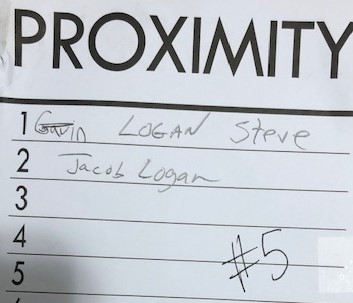 PROXIMITY
1 Gavin LOGAN Steve
2 Jacob Logan
3
4
#5
5